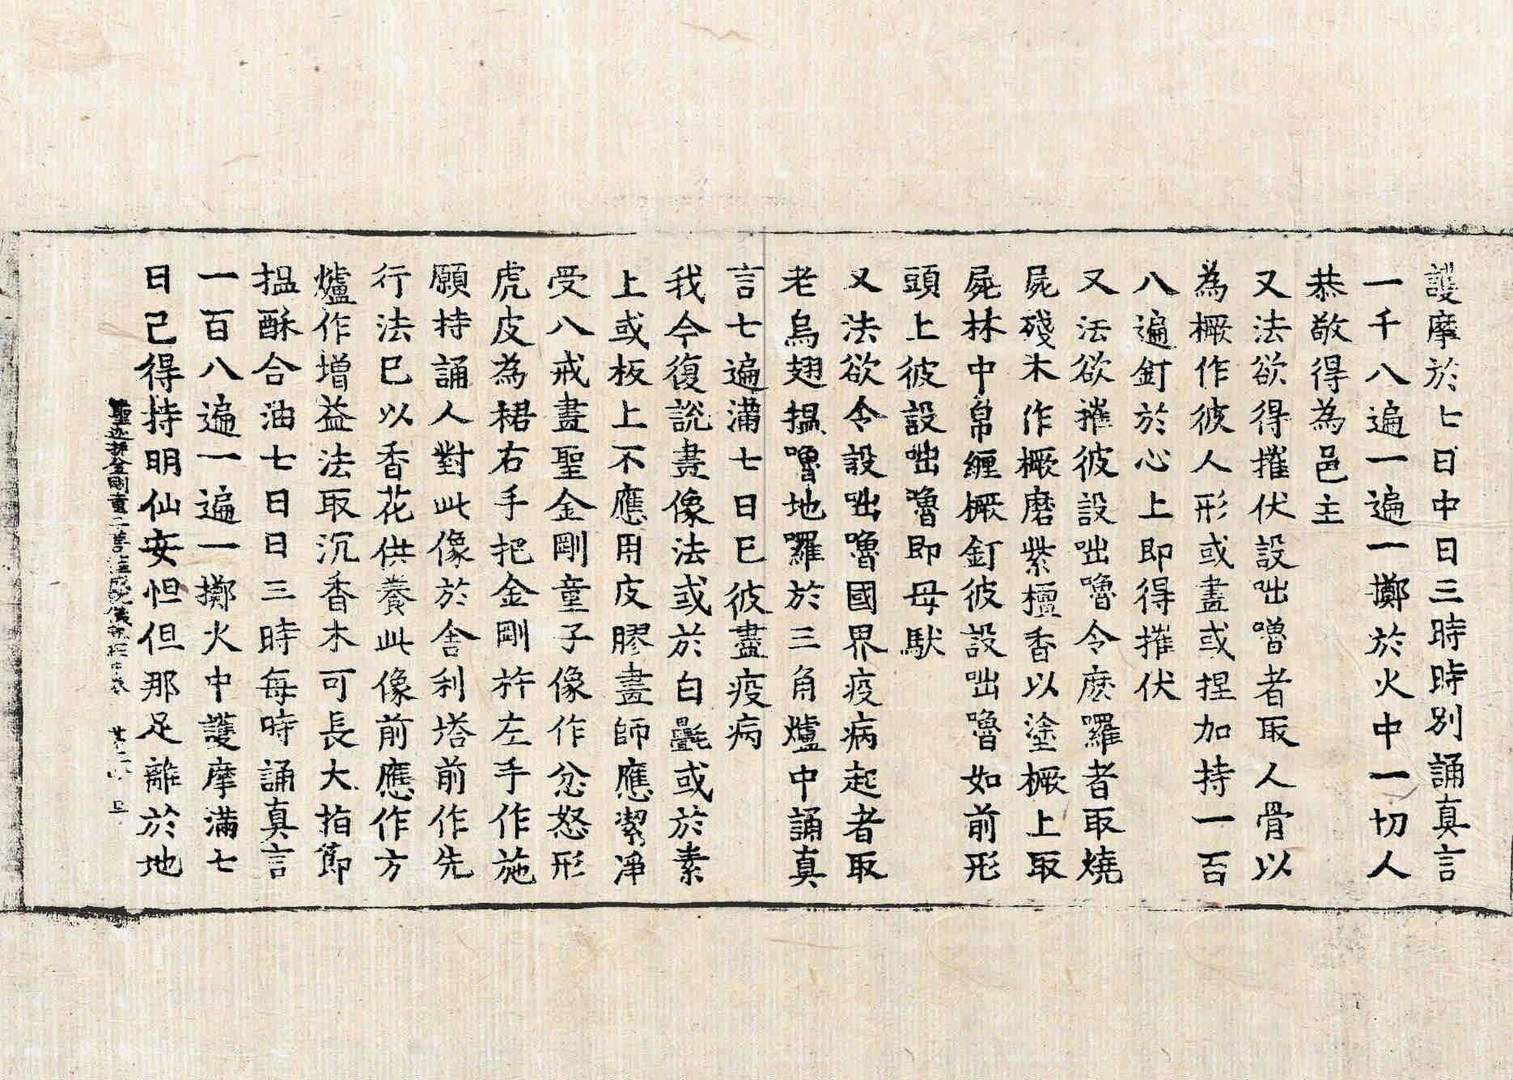 護摩於七日中日三時時別誦真言
一千八遍一遍一擲於火中一切人
恭敬得為邑主
又法欲得摧伏設咄嚕者取人骨以
為橛作彼人形或畫或捏加持一百
八遍釘於心上即得摧伏
又法欲摧彼設咄嚕令麼羅者取燒
屍殘木作橛磨紫檀香以塗橛上取
屍林中帛纏橛釘彼設咄嚕如前形
頭上彼設咄嚕即母馱
又法欲令設咄嚕國界疫病起者取
老烏翅搵嚕地囉於三角爐中誦真
言七遍滿七日已彼盡疫病
我今復說畫像法或於白㲲或於素
上或板上不應用皮膠畫師應潔淨
受八戒畫聖金剛童子像作忿怒形
虎皮為裙右手把金剛杵左手作施
願持誦人對此像於舍利塔前作先
行法已以香花供養此像前應作方
爐作增益法取沉香木可長大指節
搵酥合油七日日三時每時誦真言
一百八遍一遍一擲火中護摩滿七
日已得持明仙安怛但那足離於地
聖迦抳金剛童子菩薩成就儀軌經中卷